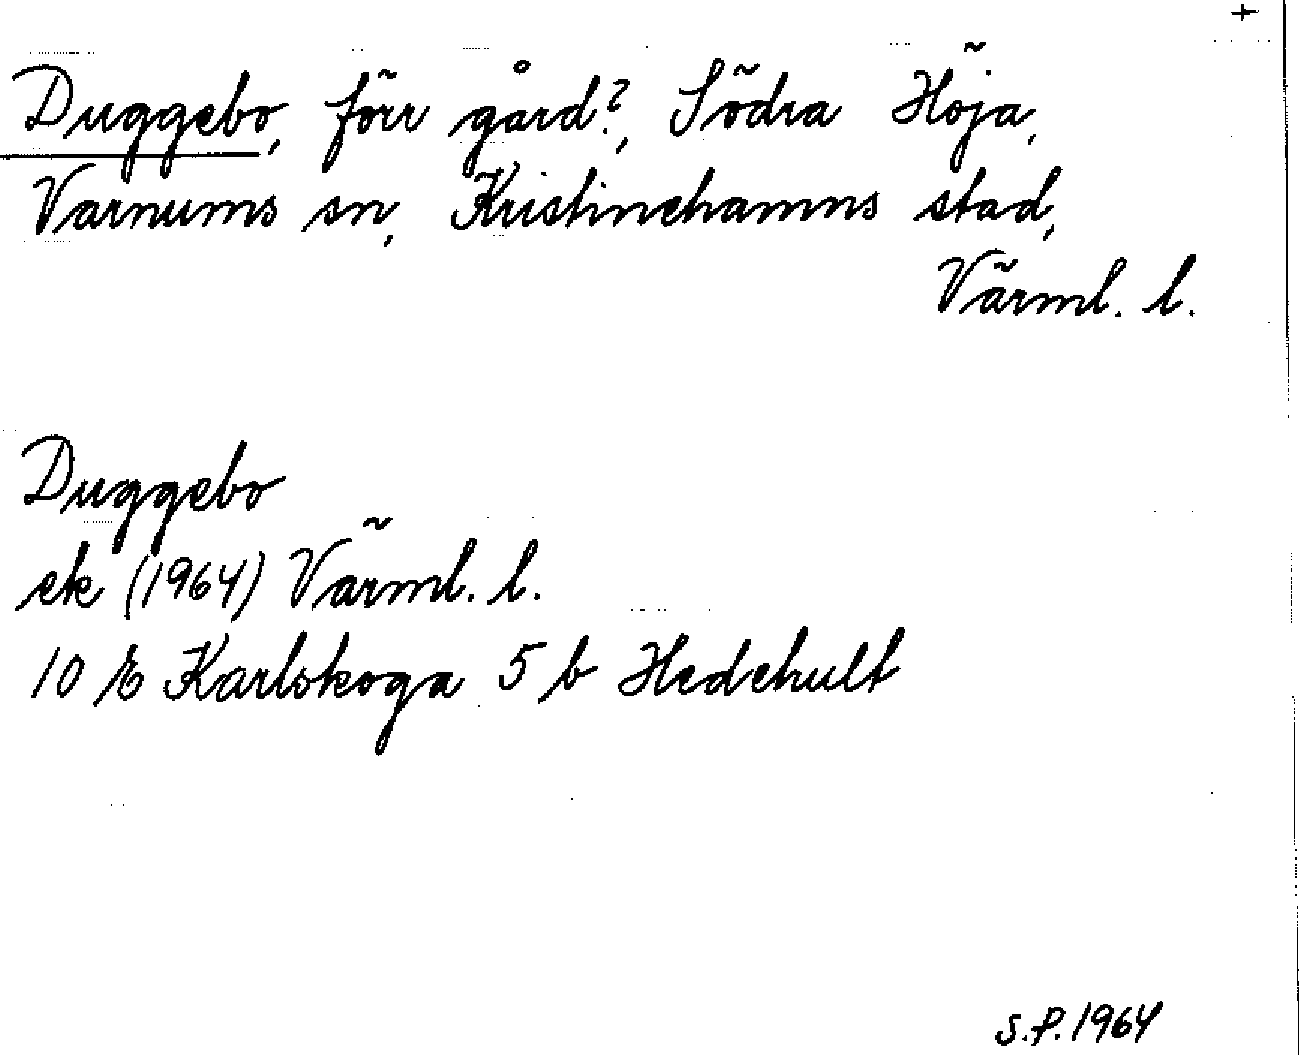 +
Duggebo, förr gård?, Södra Höja,
Varnums sn, Kristinehamns stad,
Värml. l.
Duggebo
ek (1964) Värml. l.
10 E Karlskoga 5 b Hedehult
S.P. 1964